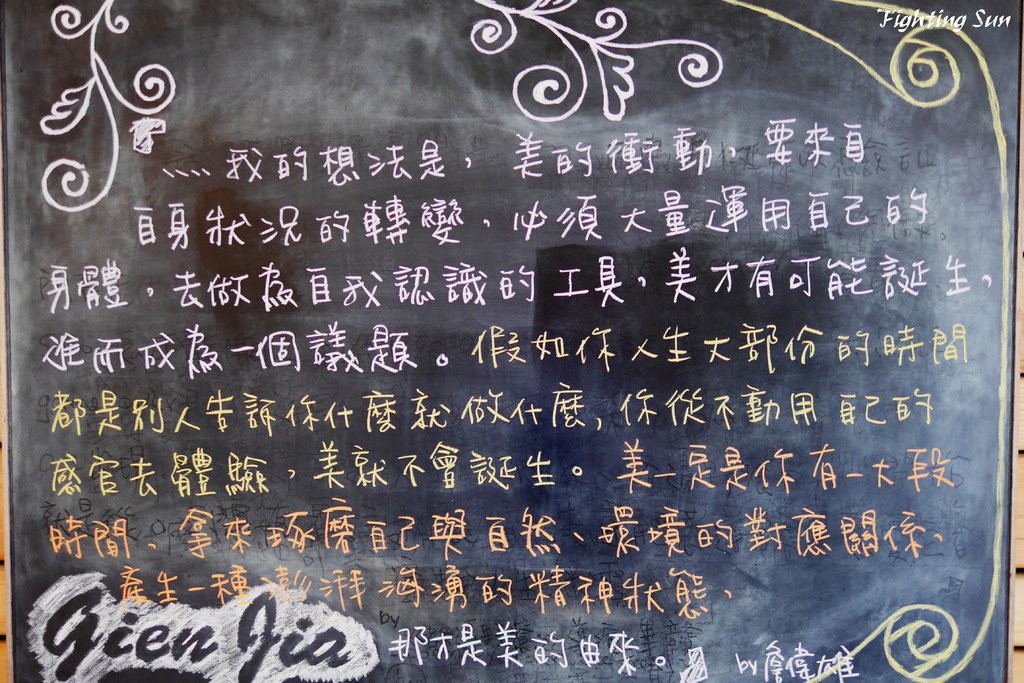 Fighting Sun
……我的想法是，美的衝動，要來自
自身狀況的轉變，必須大量運用自己的
身體，去做為自我認識的工具，美才有可能誕生，
進而成為一個議題。假如你人生大部份的時間
都是別人告訴你什麼就做什麼，你從不動用自己的
感官去體驗，美就不會誕生。美一定是你有一大段
時間、拿來琢磨自己與自然、環境的對應關係、
產生一種澎湃海湧的精神狀態，
那才是美的由來。 by 詹偉雄
Gien Jia